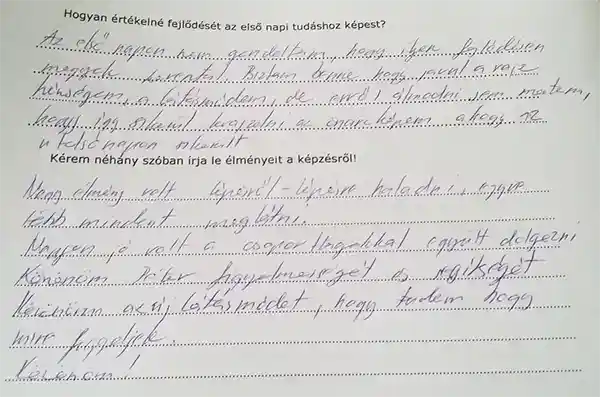 Hogyan értékelné fejlődését az első napi tudáshoz képest?
Az első napon nem gondoltam, hogy ilyen fejlődésen
megyek Biztam benne hogy javul a rajz
készségem, a látásmódom, de erről álmodni sem mertem,
hogy így sikerül rajzolni az önarcképem ahogy az
utolsó napon sikerült
Kérem néhány szóban írja le élményeit a képzésről!
Nagy élmény volt lépésről-lépésre haladni, egyre
több mindent meglátni.
Nagyon jó volt a csoporttagokkal együtt dolgozni
Köszönöm Péter figyelmességét és segítségét
Köszönöm az új látásmódot, hogy tudom hogy
mire figyeljek.
Köszönöm!